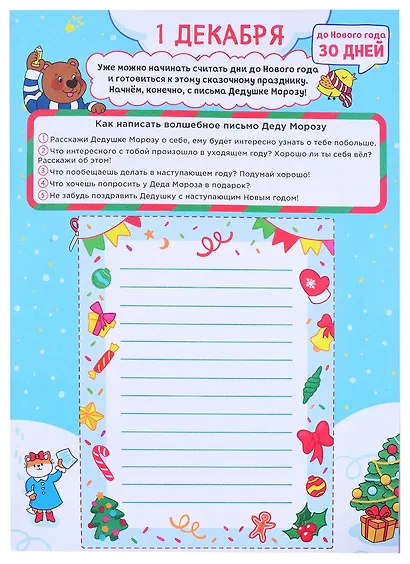 1 ДЕКАБРЯ
до Нового года
30 ДНЕЙ
Уже можно начинать считать дни до Нового года
и готовиться к этому сказочному празднику.
Начнём, конечно, с письма Дедушке Морозу!
Как написать волшебное письмо Деду Морозу
1 Расскажи Дедушке Морозу о себе, ему будет интересно узнать о тебе побольше.
2 Что интересного с тобой произошло в уходящем году? Хорошо ли ты себя вёл?
Расскажи об этом!
3 Что пообещаешь делать в наступающем году? Подумай хорошо!
4 Что хочешь попросить у Деда Мороза в подарок?
5 Не забудь поздравить Дедушку с наступающим Новым годом!